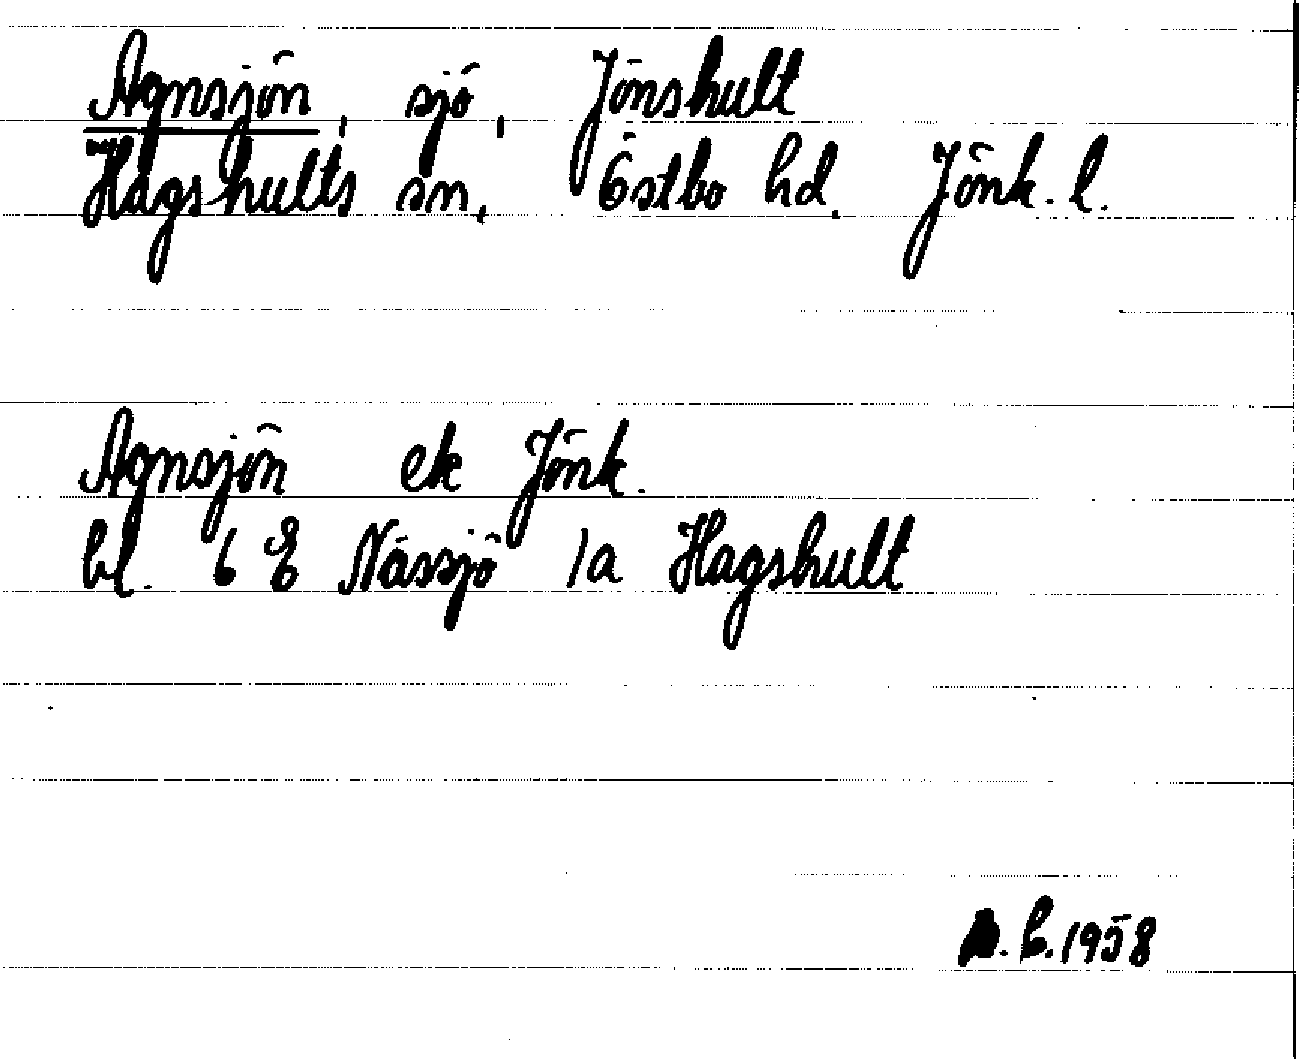 Agnsjön, sjö, Jönshult
Hagshults sn, Östbo hd. Jönk. l.
Agnsjön ek Jönk.
bl. 6 E Nässjö 1a Hagshult
B. 1958